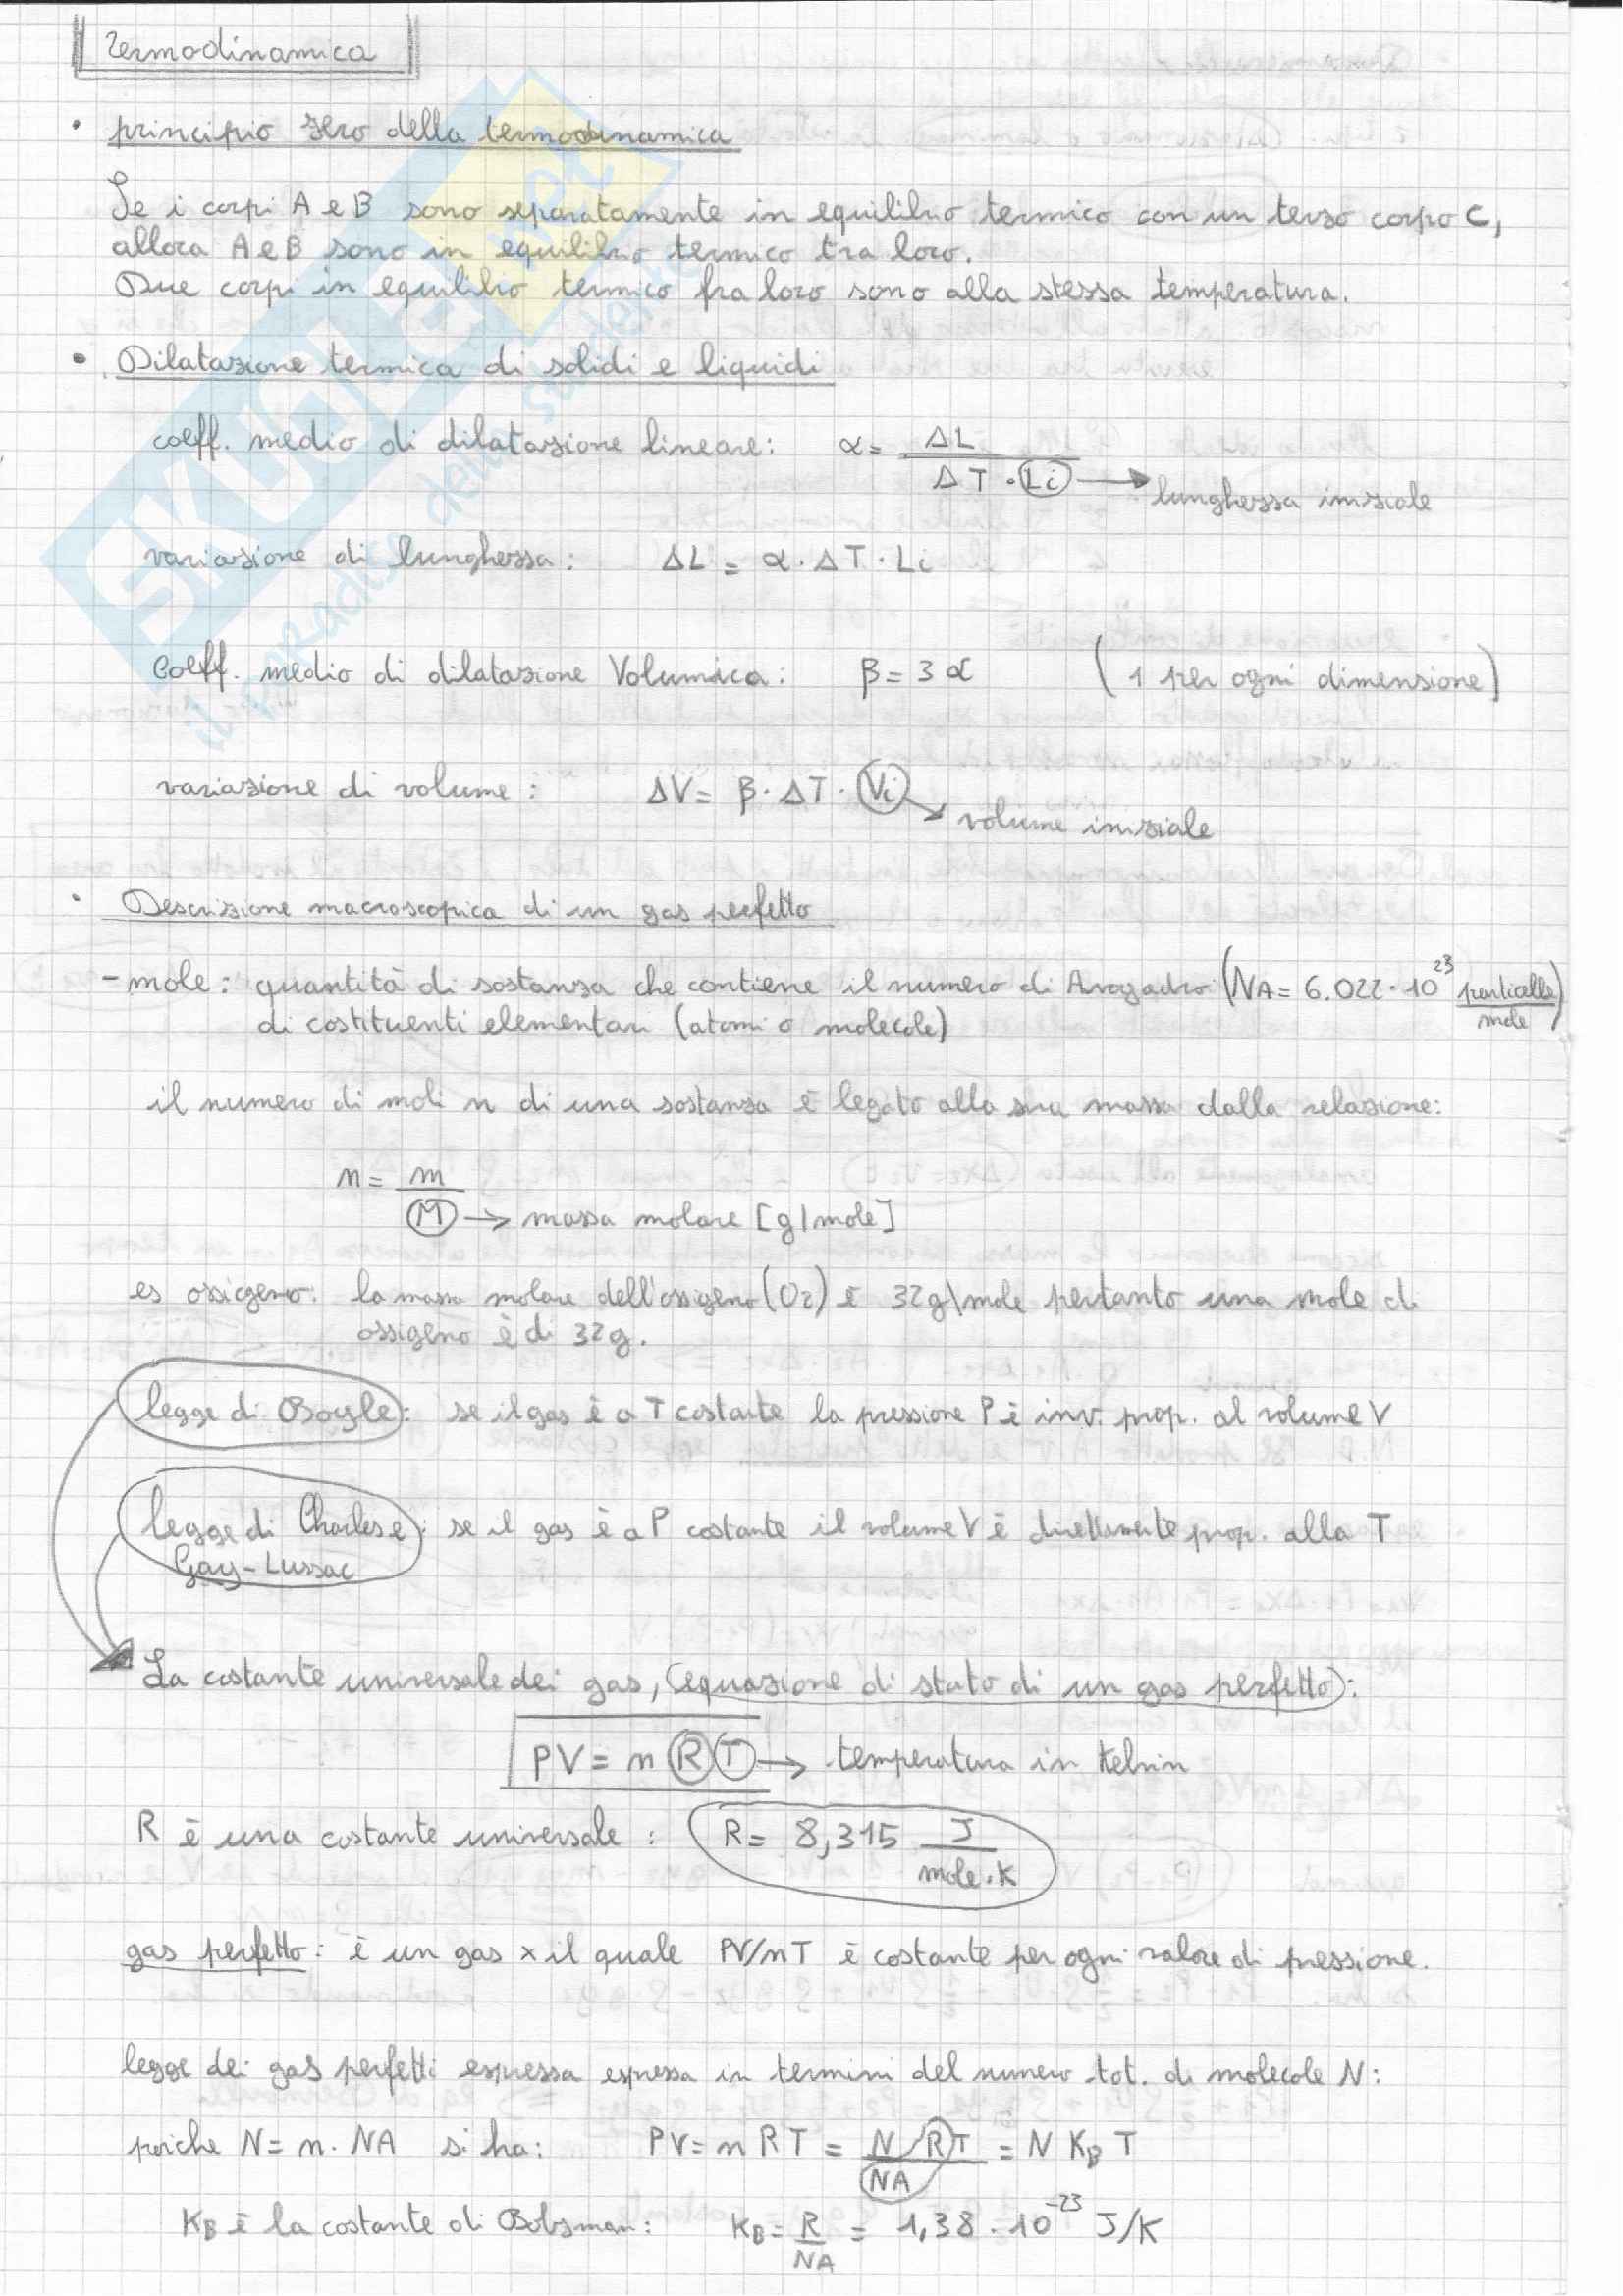 Termodinamica
• principio zero della termodinamica
Se i corpi A e B sono separatamente in equilibrio termico con un terzo corpo C,
allora A e B sono in equilibrio termico tra loro.
Due corpi in equilibrio termico fra loro sono alla stessa temperatura.
• Dilatazione termica di solidi e liquidi
coeff. medio di dilatazione lineare: α = ΔL / ΔT · Li → lunghezza iniziale
variazione di lunghezza: ΔL = α · ΔT · Li
Coeff. medio di dilatazione Volumica: β = 3α (1 per ogni dimensione)
variazione di volume: ΔV = β · ΔT · Vi → volume iniziale
• Descrizione macroscopica di un gas perfetto
- mole: quantità di sostanza che contiene il numero di Avogadro (NA = 6.022 · 10^23 particelle/mole)
di costituenti elementari (atomi o molecole)
il numero di moli n di una sostanza è legato alla sua massa dalla relazione:
n = m / M → massa molare [g/mole]
es ossigeno: la massa molare dell'ossigeno (O2) è 32g\mole pertanto una mole di
ossigeno è di 32g.
legge di Boyle: se il gas è a T costante la pressione P è inv. prop. al volume V
legge di Charles e Gay-Lussac: se il gas è a P costante il volume V è direttamente prop. alla T
La costante universale dei gas, (equazione di stato di un gas perfetto):
PV = n R T → temperatura in Kelvin
R è una costante universale: R = 8,315 J / mole · K
gas perfetto: è un gas x il quale PV/nT è costante per ogni valore di pressione.
legge dei gas perfetti espressa espressa in termini del numero tot. di molecole N:
poiche N = n · NA si ha: PV = n R T = N R T / NA = N KB T
KB è la costante di Bolzman: KB = R / NA = 1,38 · 10^-23 J/K
SKUOLA.net
il paradiso dello studente